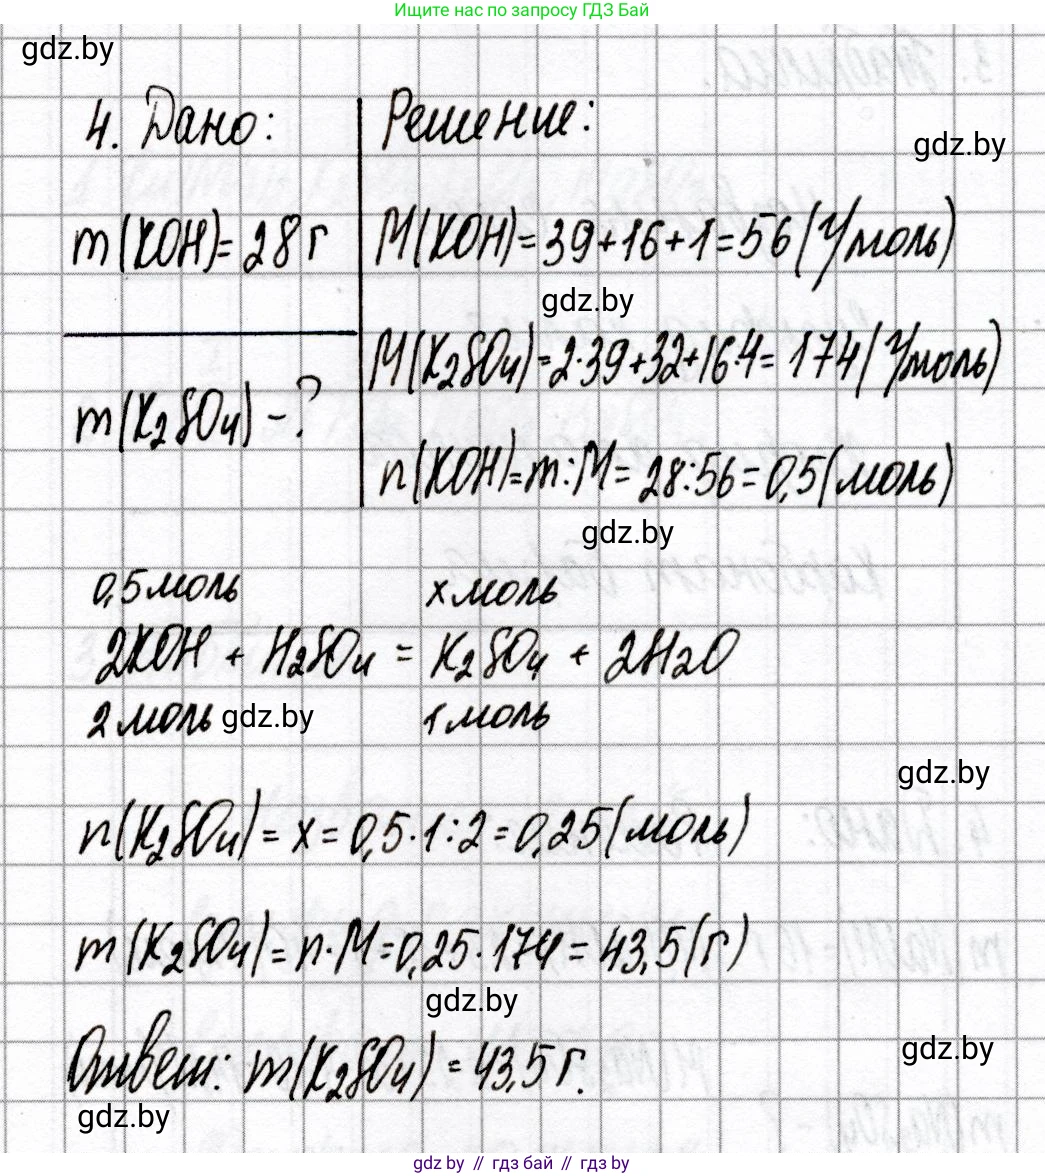 Ищите нас по запросу ГДЗ Бай
gdz.by
4. Дано:
Решение:
gdz.by
m(KOH)=28г
M(KOH)=39+16+1=56(г/моль)
gdz.by
M(K₂SO₄)=2·39+32+16·4=174(г/моль)
m(K₂SO₄)-?
n(KOH)=m:M=28:56=0,5(моль)
gdz.by
0,5моль xмоль
2KOH + H₂SO₄ = K₂SO₄ + 2H₂O
2моль gdz.by 1моль
gdz.by
n(K₂SO₄)=x=0,5·1:2=0,25(моль)
m(K₂SO₄)=n·M=0,25·174=43,5(г)
gdz.by
Ответ: m(K₂SO₄)=43,5г.
gdz.by
gdz.by
gdz by // гдз бай // gdz by